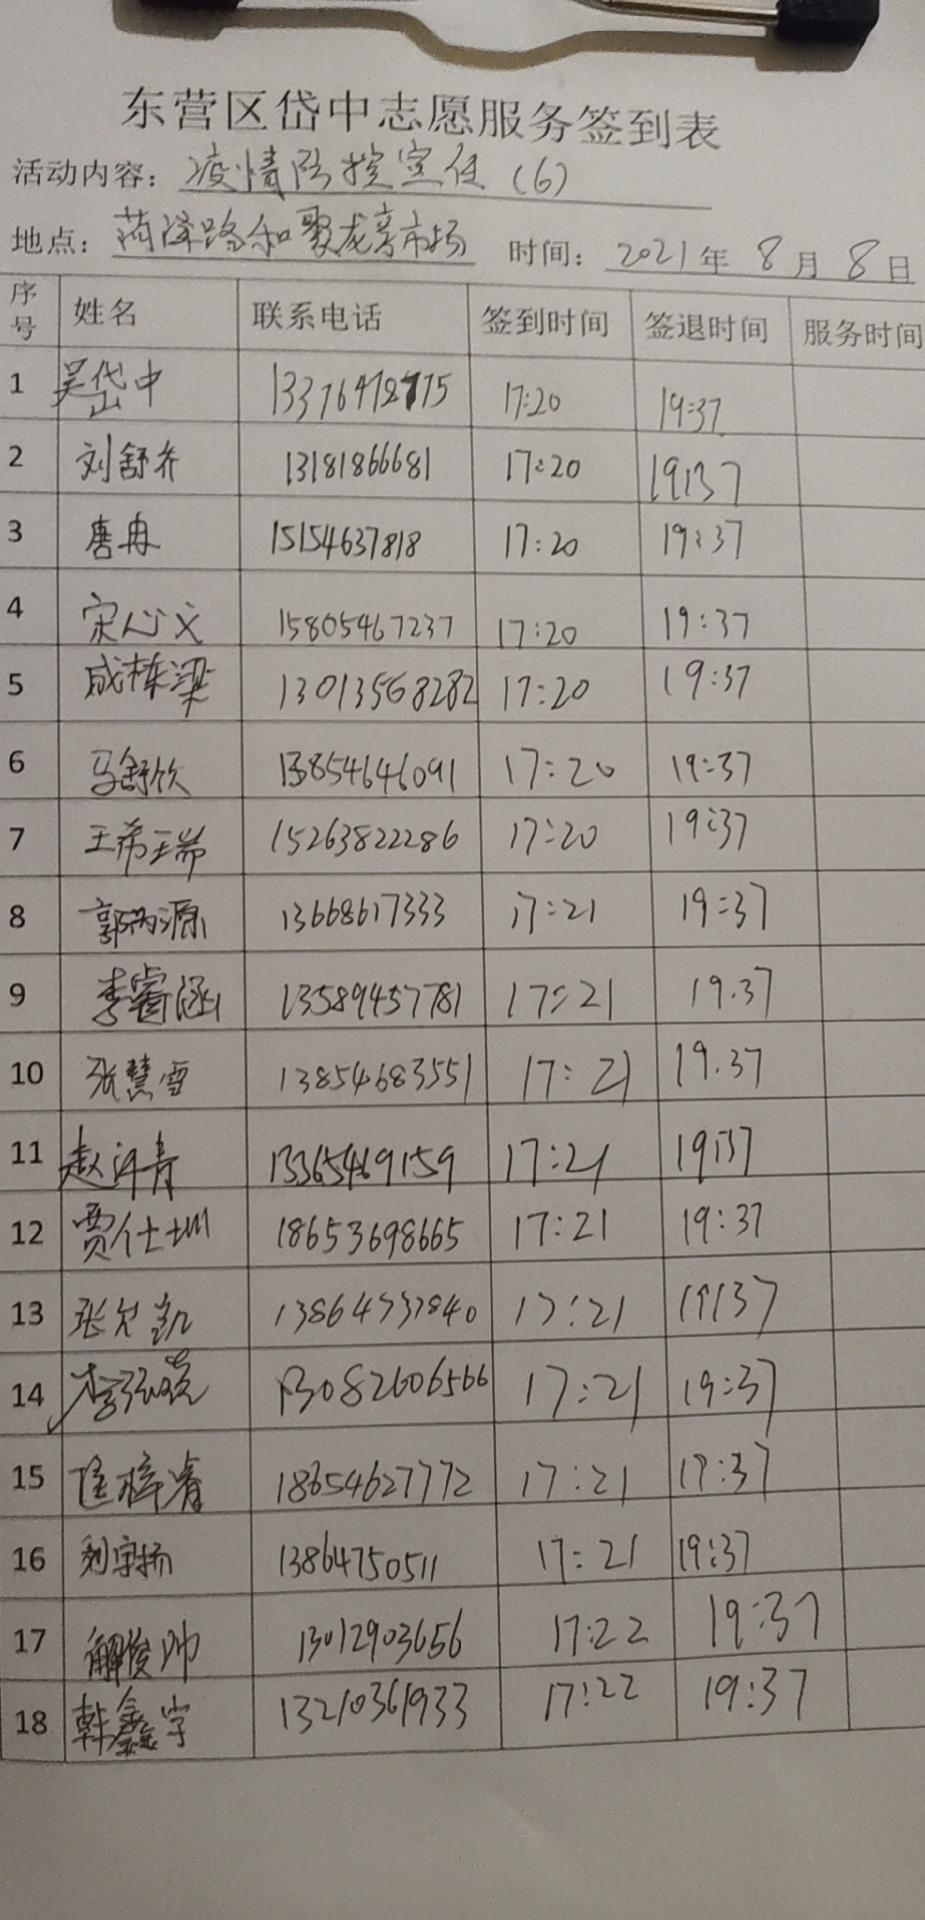 东营区岱中志愿服务签到表
活动内容：疫情防控宣传（6）
地点：菏泽路和聚龙 市场 时间：2021年8月8日
序号 姓名 联系电话 签到时间 签退时间 服务时间
1 吴岱中 17:20 19:37
2 刘舒乔 13181866681 17:20 19:37
3 唐冉 15154637818 17:20 19:37
4 宋心文 15805467237 17:20 19:37
5 成栋梁 13013568282 17:20 19:37
6 马舒欣 13854646091 17:20 19:37
7 王希瑞 15263822286 17:20 19:37
8 郭 源 13668617333 17:21 19:37
9 李睿涵 13589457781 17:21 19.37
10 张慧雪 13854683551 17:21 19.37
11 赵 青 13365469159 17:21 19:37
12 贾仕圳 18653698665 17:21 19:37
13 张 凯 17:21 19:37
14 李 13082606566 17:21 19:37
15 匡梓睿 18654627772 17:21 19:37
16 刘宇扬 13864750511 17:21 19:37
17 解俊帅 13012903656 17:22 19:37
18 韩鑫宇 13210361933 17:22 19:37